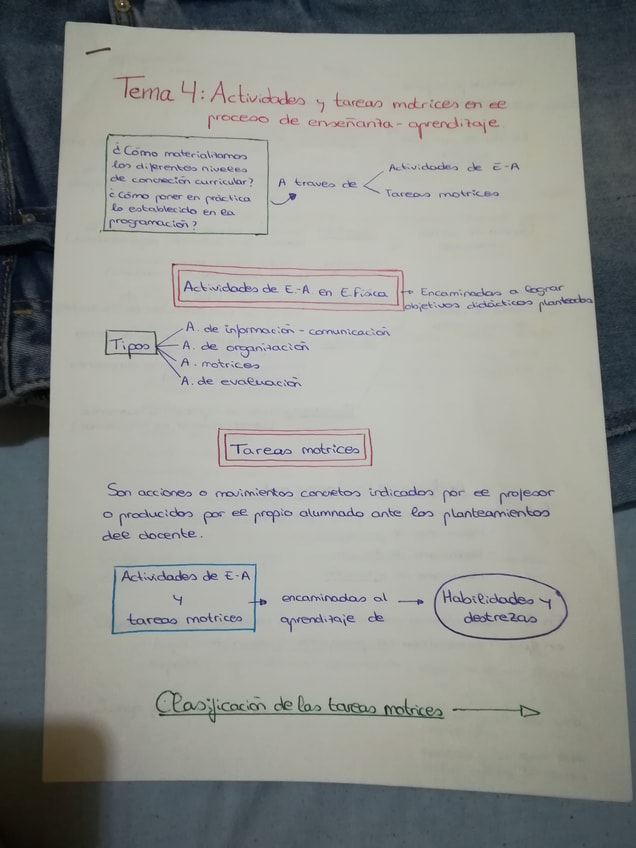 Tema 4: Actividades y tareas motrices en el
proceso de enseñanza-aprendizaje
¿Cómo materializamos
los diferentes niveles
de concreción curricular?
¿Cómo poner en práctica
lo establecido en la
programación?
A traves de
Actividades de E-A
Tareas motrices
Actividades de E-A en E.Física
Encaminadas a lograr
objetivos didácticos planteados
Tipos
A. de información-comunicación
A. de organización
A. motrices
A. de evaluación
Tareas motrices
Son acciones o movimientos concretos indicados por el profesor
o producidos por el propio alumnado ante los planteamientos
del docente.
Actividades de E-A
y
tareas motrices
encaminadas al
aprendizaje de
Habilidades y
destrezas
Clasificación de las tareas motrices